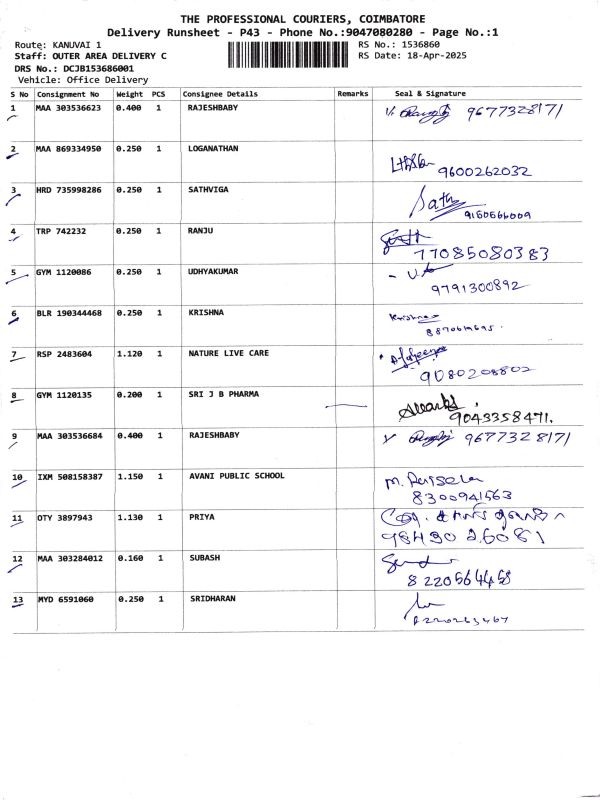 THE PROFESSIONAL COURIERS, COIMBATORE
Delivery Runsheet - P43 - Phone No.:9047080280 - Page No.:1
Route: KANUVAI 1 RS No.: 1536860
Staff: OUTER AREA DELIVERY C RS Date: 18-Apr-2025
DRS No.: DCJB153686001
Vehicle: Office Delivery
S No Consignment No Weight PCS Consignee Details Remarks Seal & Signature
1 MAA 303536623 0.400 1 RAJESHBABY 9677328171
2 MAA 869334950 0.250 1 LOGANATHAN
9600262032
3 HRD 735998286 0.250 1 SATHVIGA
Sath
9150566009
4 TRP 742232 0.250 1 RANJU
77085080383
5 GYM 1120086 0.250 1 UDHYAKUMAR
9791300892
6 BLR 190344468 0.250 1 KRISHNA
Krishna
7 RSP 2483604 1.120 1 NATURE LIVE CARE
9080208802
8 GYM 1120135 0.200 1 SRI J B PHARMA
9043358471.
9 MAA 303536684 0.400 1 RAJESHBABY 9677328171
10 IXM 508158387 1.150 1 AVANI PUBLIC SCHOOL
8300941563
11 OTY 3897943 1.130 1 PRIYA
9843026081
12 MAA 303284012 0.160 1 SUBASH
8220564458
13 MYD 6591060 0.250 1 SRIDHARAN